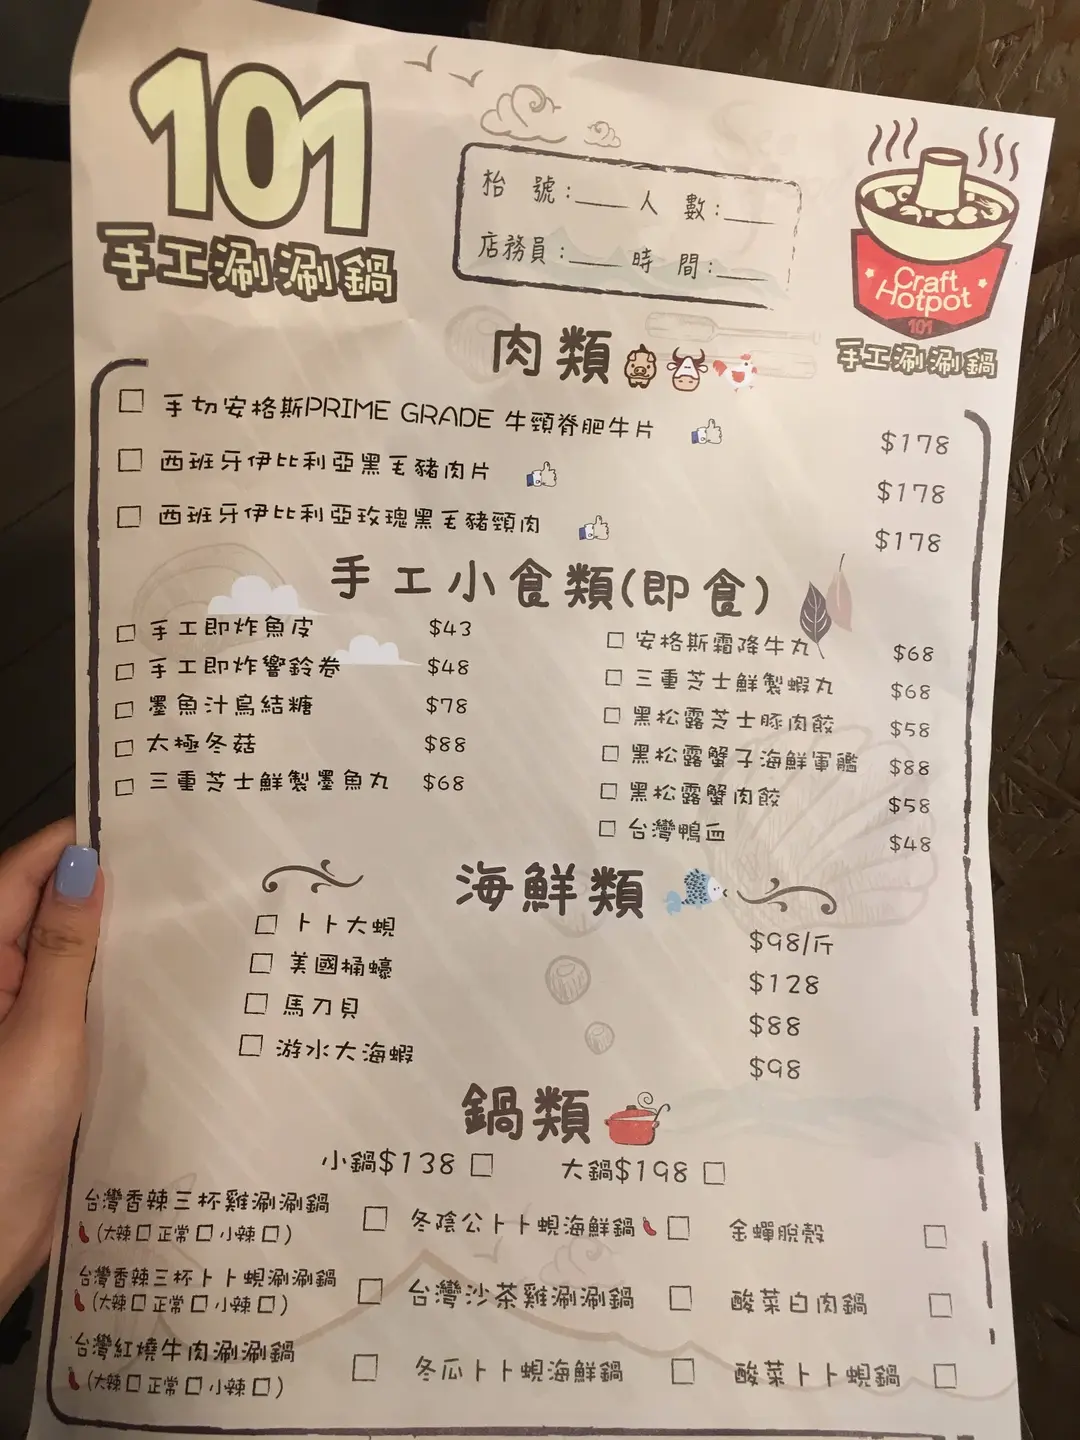 101
手工涮涮鍋
枱 號:____ 人 數:____
店務員:____ 時 間:____
Craft
Hotpot
101
手工涮涮鍋
肉類
□ 手切安格斯PRIME GRADE 牛頸脊肥牛片 $178
□ 西班牙伊比利亞黑毛豬肉片 $178
□ 西班牙伊比利亞玫瑰黑毛豬頸肉 $178
手工小食類(即食)
□ 手工即炸魚皮 $43
□ 手工即炸響鈴卷 $48
□ 墨魚汁烏結糖 $78
□ 太極冬菇 $88
□ 三重芝士鮮製墨魚丸 $68
□ 安格斯霜降牛丸 $68
□ 三重芝士鮮製蝦丸 $68
□ 黑松露芝士豚肉餃 $58
□ 黑松露蟹子海鮮軍艦 $88
□ 黑松露蟹肉餃 $58
□ 台灣鴨血 $48
海鮮類
□ 卜卜大蜆 $98/斤
□ 美國桶蠔 $128
□ 馬刀貝 $88
□ 游水大海蝦 $98
鍋類
小鍋$138 □ 大鍋$198 □
台灣香辣三杯雞涮涮鍋 □
(大辣 □ 正常 □ 小辣 □)
冬陰公卜卜蜆海鮮鍋 □
金蟬脫殼 □
台灣香辣三杯卜卜蜆涮涮鍋 □
(大辣 □ 正常 □ 小辣 □)
台灣沙茶雞涮涮鍋 □
酸菜白肉鍋 □
台灣紅燒牛肉涮涮鍋 □
(大辣 □ 正常 □ 小辣 □)
冬瓜卜卜蜆海鮮鍋 □
酸菜卜卜蜆鍋 □